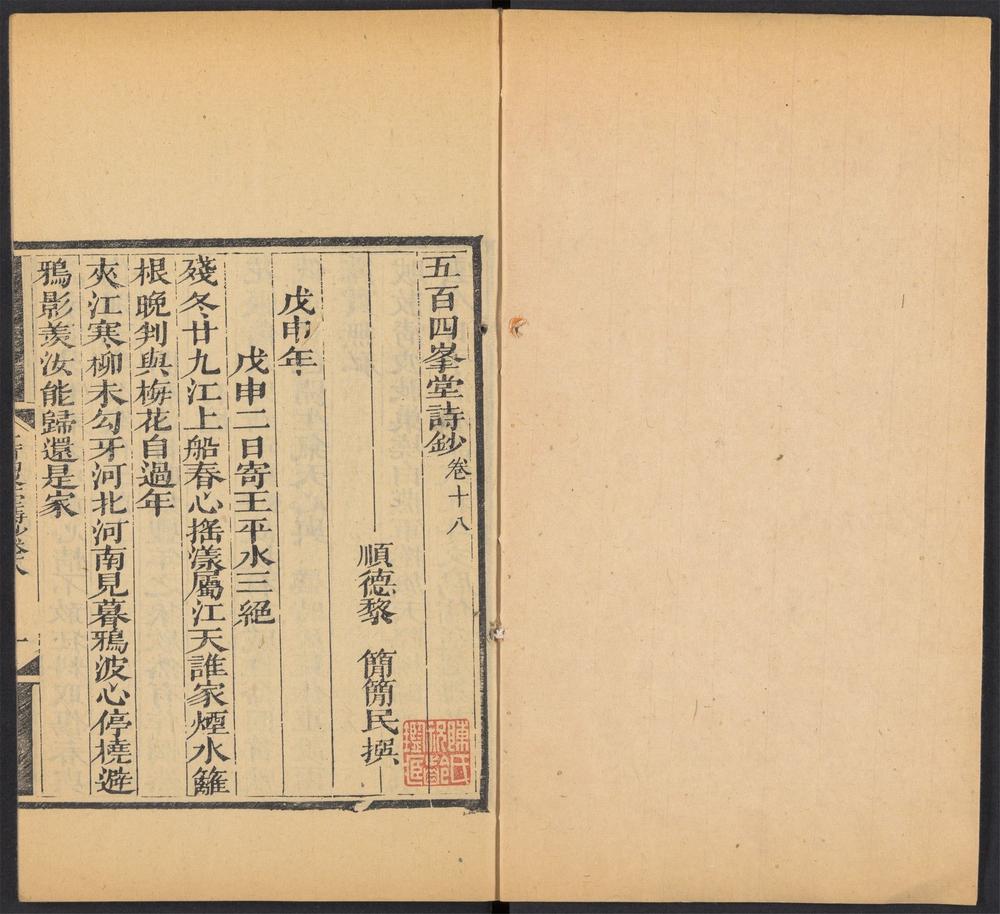 五百四峯堂詩鈔卷十八
順德黎 簡簡民撰
戊申年
戊申二日寄王平水三絕
殘冬廿九江上船春心搖漾屬江天誰家煙水籬
根晚判與梅花自過年
夾江寒柳未勾牙河北河南見暮鴉波心停橈避
鴉影羨汝能歸還是家